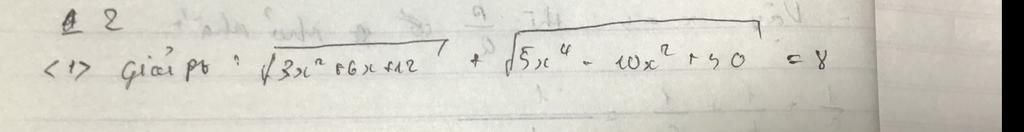 2
<1> Giải pt : √3x² + 6x + 12 + √5x⁴ - 10x² + 30 = 8